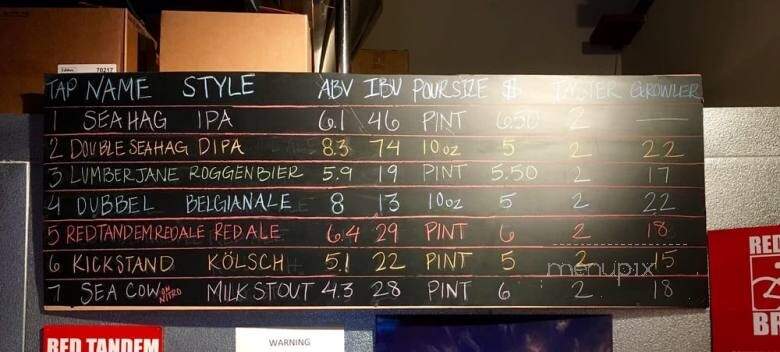 70217
TAP NAME STYLE ABV IBU POUR SIZE $ TASTER GROWLER
1 SEA HAG IPA 6.1 46 PINT 6.50 2 —
2 DOUBLE SEAHAG DIPA 8.3 74 10oz 5 2 22
3 LUMBERJANE ROGGENBIER 5.9 19 PINT 5.50 2 17
4 DUBBEL BELGIAN ALE 8 13 10oz 5 2 22
5 RED TANDEM RED ALE RED ALE 6.4 29 PINT 6 2 18
6 KICKSTAND KÖLSCH 5.1 22 PINT 5 2 15
7 SEA COW ON NITRO MILK STOUT 4.3 28 PINT 6 2 18
menupix
RED TANDEM
WARNING
RED
BR